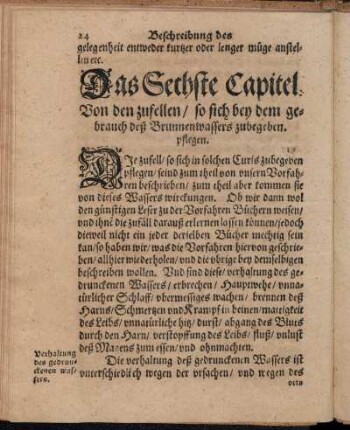 24 Beschreibung des
gelegenheit entweder kurtzer oder lenger müge anstel-
len etc.
Das Sechste Capitel.
Von den zufellen / so sich bey dem ge-
brauch deß Brunnenwassers zubegeben
pflegen.
DIe zufell / so sich in solchen Curis zubegeben
pflegen / seind zum theil von unsern Vorfah-
ren beschrieben / zum theil aber kommen sie
von dieses Wassers wirckungen. Ob wir dann wol
den günstigen Leser zu der Vorfahren Büchern weisen /
und ihne die zufäll darauß erlernen lassen können / jedoch
dieweil nicht ein jeder derselben Bücher mechtig sein
kan / so haben wir / was die Vorfahren hiervon geschrie-
ben / allhier wiederholen / und die ubrige bey demselbigen
beschreiben wollen. Und sind diese / verhaltung des ge-
drunckenen Wassers / erbrechen / Hauptwehe / unna-
türlicher Schlaff / ubermessiges wachen / brennen deß
Harns / Schmertzen und Krampf in beinen / mattigkeit
des Leibs / unnatürliche hitz / durst / abgang des Bluts
durch den Harn / verstopffung des Leibs / fluß / unlust
deß Magens zum essen / und ohnmachten.
Verhaltung
des gedrun-
ckenen was-
sers.
Die verhaltung deß gedrunckenen Wassers ist
unterschiedlich wegen der ursachen / und wegen des